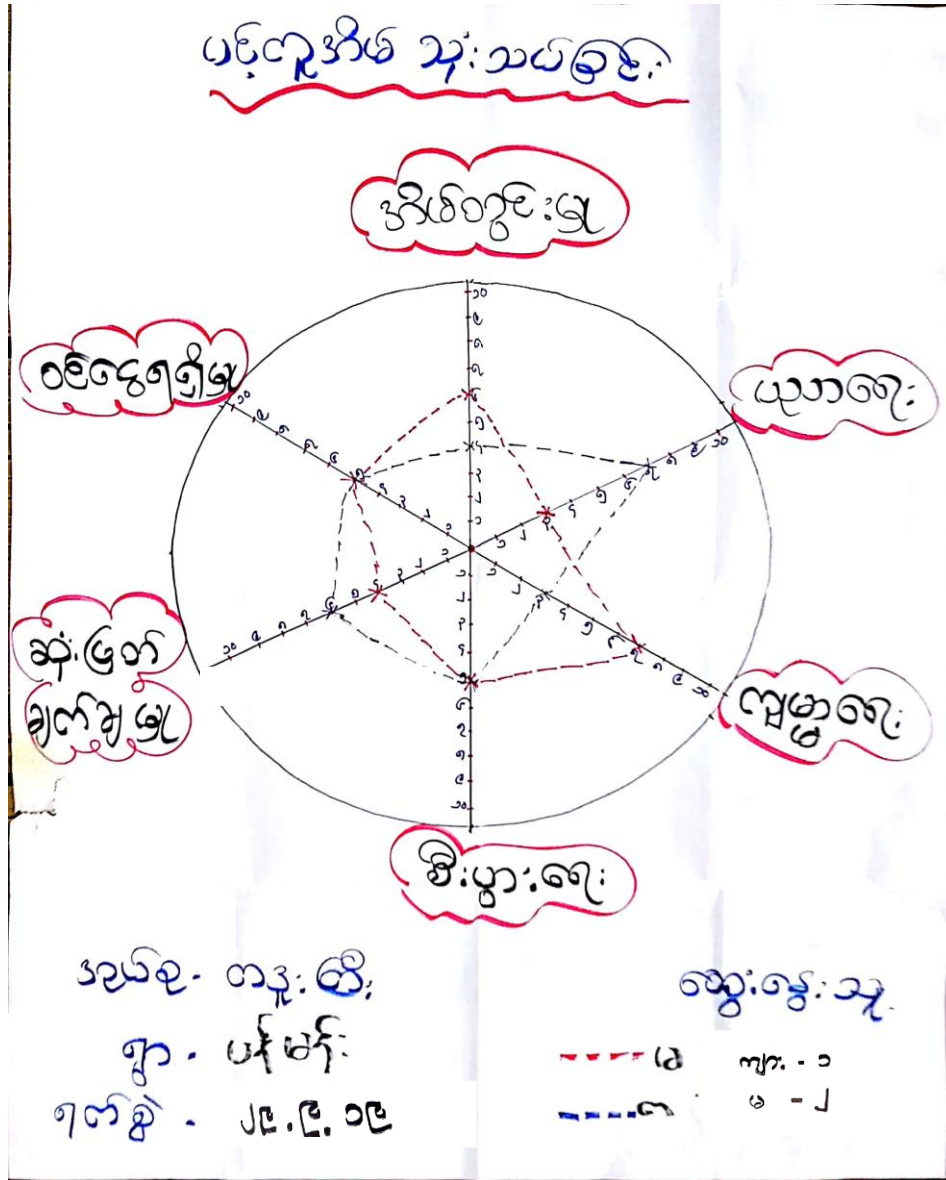 ပင့်ကူအိမ် သုံးသပ်ခြင်း
အိမ်တွင်းမှု
ဝင်ငွေရရှိမှု
ယုဘရေး
ကျမ္မာရေး
ဆုံးဖြတ်
ချက်ချမှု
စီးပွားရေး
၁၀
၉
၈
၇
၆
၅
၄
၃
၂
၁
အုပ်စု - တဒူးကြီး
ရွာ - ပန်မန်း
ရက်စွဲ - ၂၉.၉.၁၉
ဆွေးနွေးသူ
မ ကျား - ၁
က မ - ၂